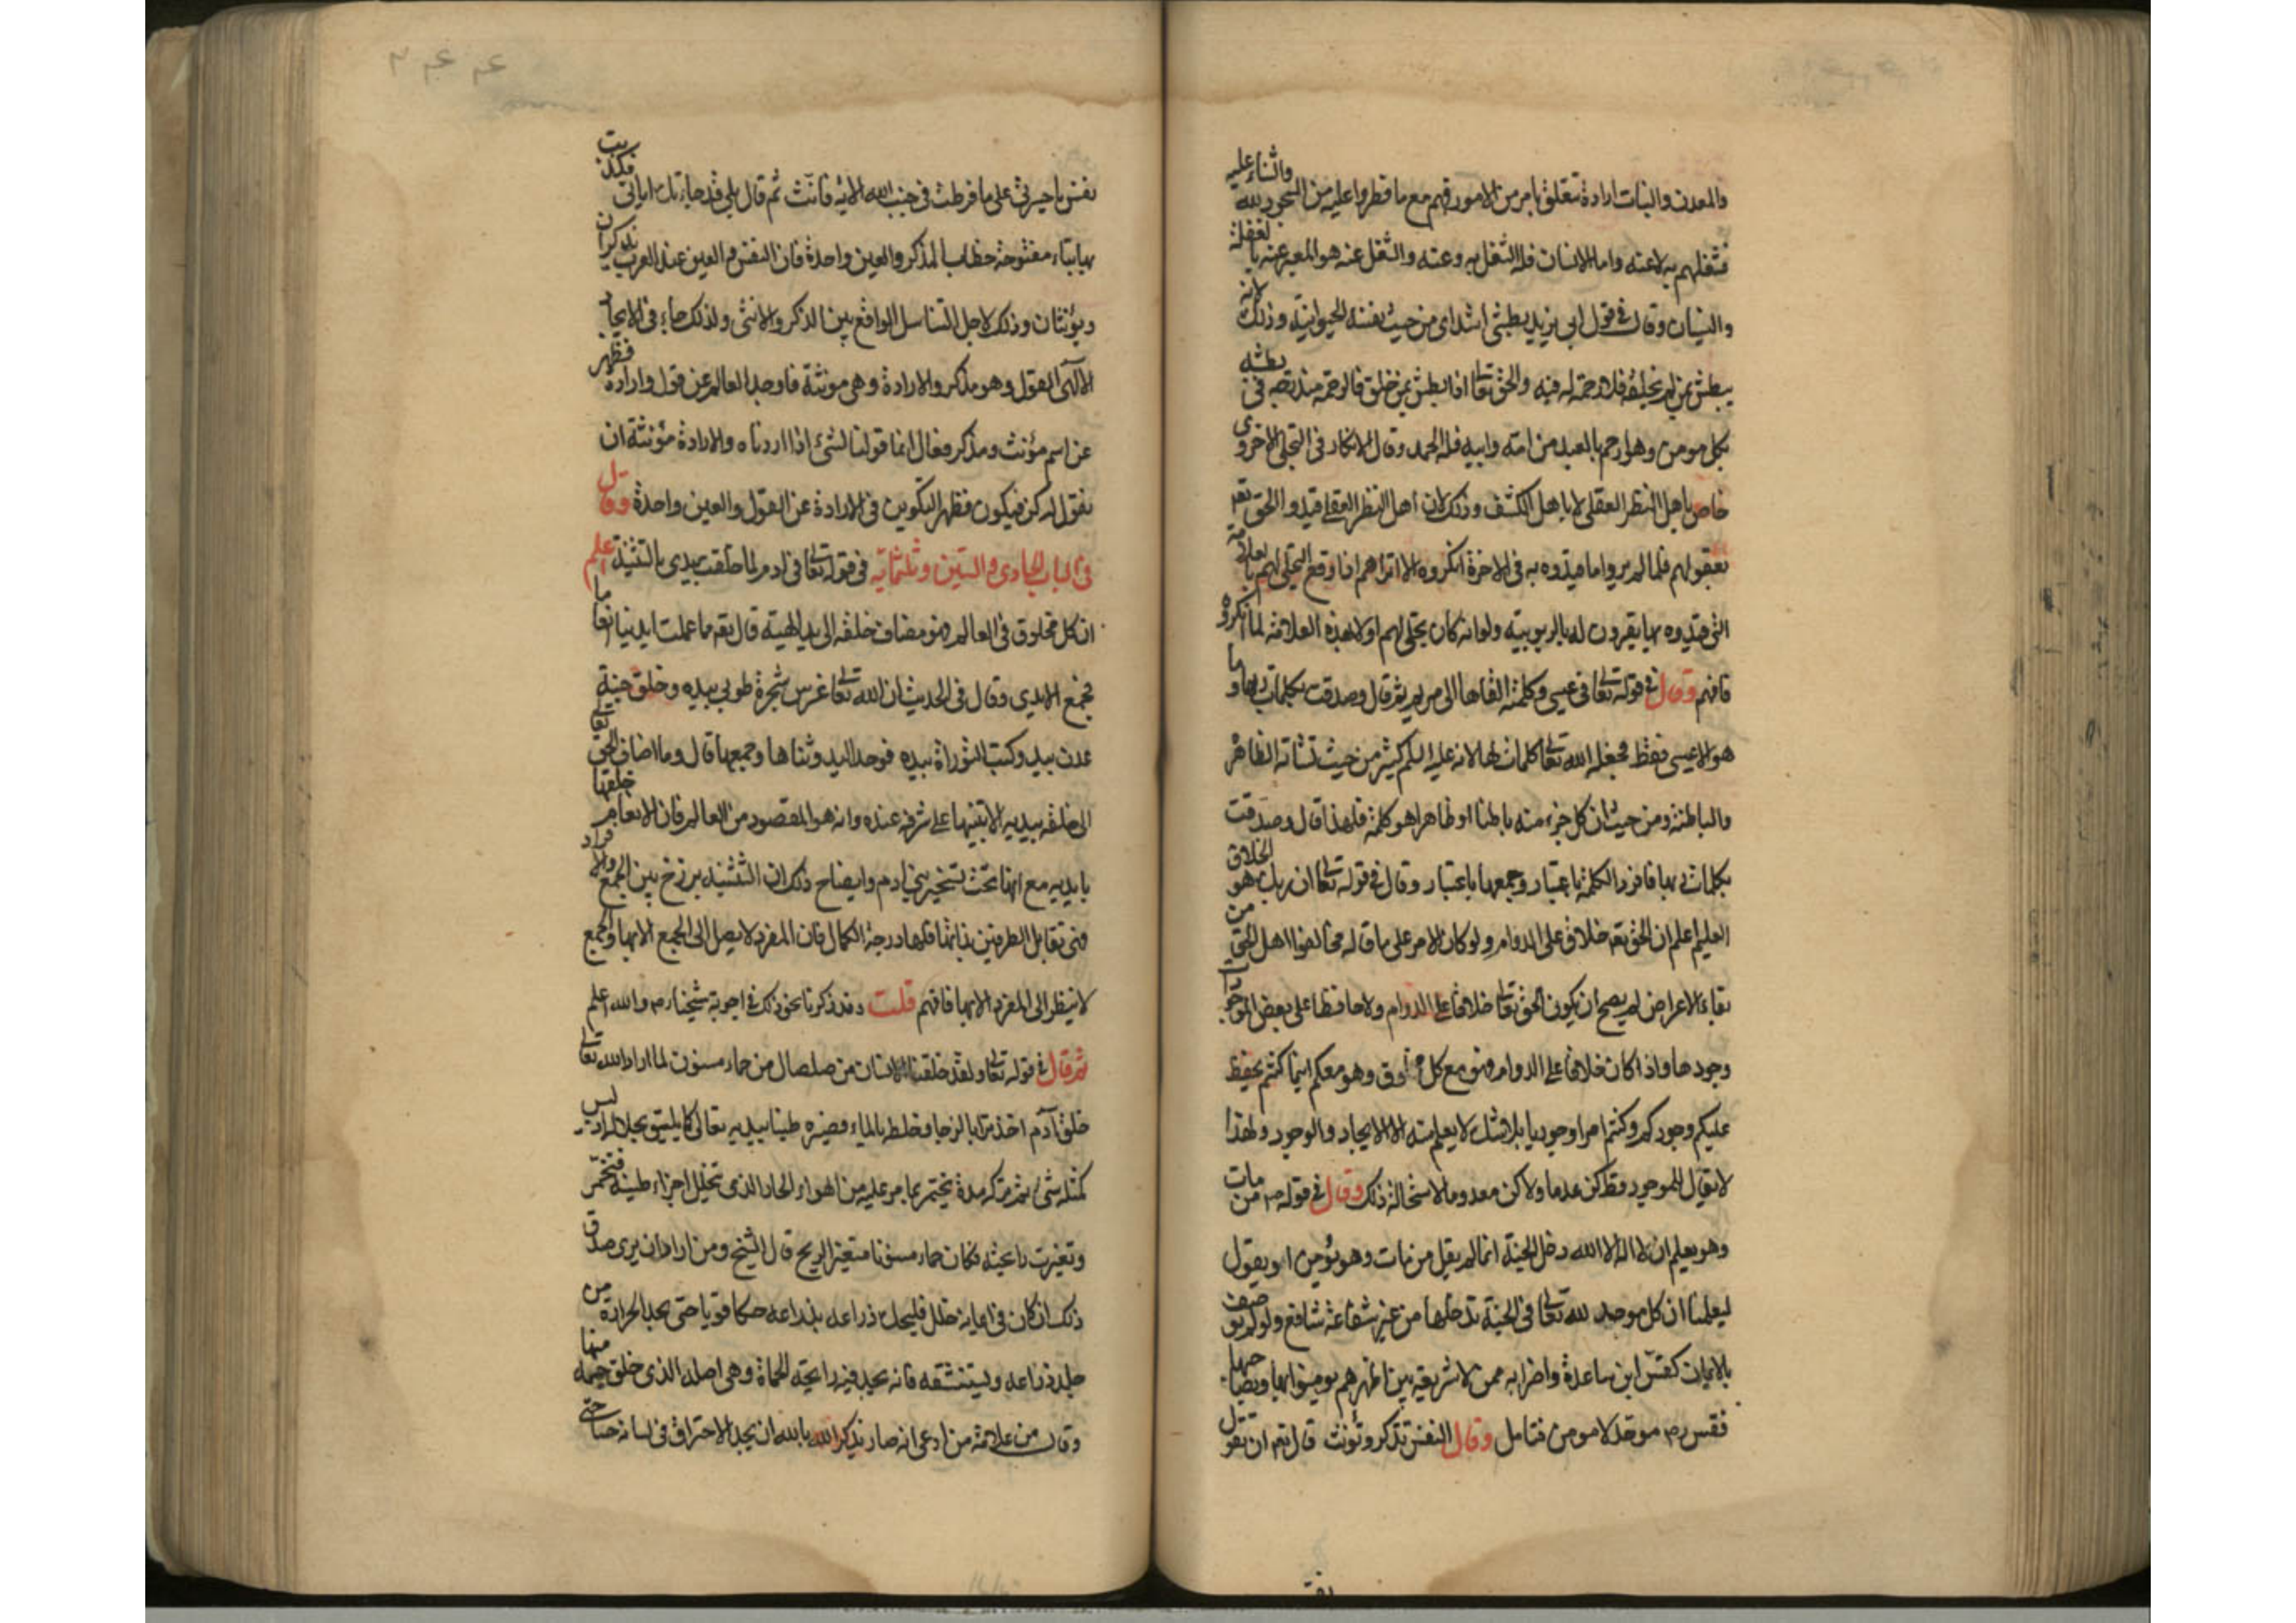 والمعدن والنبات ارادة تتعلق بامر من الامور فهم مع ما فطروا عليه من السجود لله والثناء عليه
فشغلهم به لا عنه واما الانسان فله الشغل به وعنه والشغل عنه هو المعبر عنه بالغفلة
والنسيان وقال في قول ابي يزيد بطشي اشد اى من حيث نفسه الحيوانية وذلك لانه
يبطش بمن لم يخلقه فلا رحمة له فيه والحق تعالى اذا بطش بمن خلق فالرحمة مندرجة في بطشه
بكل مومن وهو ارحم بالعبد من امه وابيه فلله الحمد وقال الانكار في التجلي الاخروى
خاص باهل النظر العقلى لا باهل الكشف وذلك لان اهل النظر العقلى قيدوا الحق تعه
بعقولهم فلما لم يروا ما قيدوه به في الاخرة انكروه الا تراهم اذا وقع التجلى لهم بالعلامة
التى قيدوه بها يقرون له بالربوبيته ولو انه كان تجلى لهم اولا بهذه العلامة لما انكروه
فافهم وقال في قوله تعالى في عيسى وكلمته القاها الى مريم ثم قال وصدقت بكلمات ربها وما
هو الا عيسى فقط فجعله الله تعالى كلمات لها لانه عليه السلام كثير من حيث نشاته الظاهرة
والباطنة ومن حيث ان كل جزء منه باطنا او ظاهرا هو كلمة فلهذا قال وصدقت
بكلمات ربها فافرد الكلمة باعتبار وجمعها باعتبار وقال في قوله تعالى ان ربك هو الخلاق
العليم اعلم ان الحق تعه خلاق على الدوام ولو كان الامر على ما قاله مخالفوا اهل الحق من
بقاء الاعراض لم يصح ان يكون الحق تعالى خلاقا على الدوام ولا حافظا على بعض الموجودات
وجودها واذا كان خلاقا على الدوام فهو مع كل مخلوق وهو معكم اينما كنتم يحفظ
عليكم وجودكم وكنتم امرا وجوديا بلا شك لا يعلم منه الا الايجاد والوجود ولهذا
لا يقال للموجود قط كن عدما ولا كن معدوما لاستحالة ذلك وقال في قوله ص من مات
وهو يعلم ان لا اله الا الله دخل الجنة انما لم يقل من مات وهو يؤمن او يقول
ليعلمنا ان كل موحد لله تعالى في الجنة يدخلها من غير شفاعة شافع ولو لم يوصف
بالايمان كقس ابن ساعدة واضرابه ممن لا شريعة بين اظهرهم يومنوا بها وبصاحبها
فقس رض موحد لا مومن فتامل وقال النفس تذكر وتونث قال تعه ان تقول
نفس يا حسرتى على ما فرطت في جنب الله الاية فانث ثم قال بلى قد جاءتك اياتى فكذبت
بها بتاء مفتوحة خطاب المذكر والعين واحدة فان النفس والعين عند العرب يذكران
ويؤنثان وذلك لاجل التناسل الواقع بين الذكر والانثى ولذلك جاء في الايجاد
الالهى القول وهو مذكر والارادة وهى مونثة فاوجد العالم عن قول وارادة فظهر
عن اسم مؤنث ومذكر فقال انما قولنا لشئ اذا اردناه والارادة مؤنثة ان
نقول له كن فيكون فظهر التكوين في الارادة عن القول والعين واحدة وقال
في الباب الحادى والستين وثلثمائه في قوله تعالى في ادم لما خلقت بيدى بالتثنية اعلم
ان كل مخلوق في العالم فهو مضاف خلقه الى يد الهية قال تعه مما عملت ايدينا انعاما
فجمع الايدى وقال في الحديث ان الله تعالى غرس شجرة طوبى بيده وخلق جنة
عدن بيده وكتب التوراة بيده فوحد اليد وثناها وجمعها قال وما اضاف الحق تعالى
الى خلقه بيديه الا تنبيها على شرفه عنده وانه هو المقصود من العالم فان الانعام خلقها
بايديه مع انها تحت تسخير بنى ادم وايضاح ذلك ان التثنية برزخ بين الجمع والافراد
فهى تقابل الطرفين بذاتها فلها درجة الكمال فان المفرد لا يصل الى الجمع الا بها والجمع
لا ينظر الى المفرد الا بها فافهم قلت وقد ذكرنا نحو ذلك في اجوبة شيخنا رض والله اعلم
ثم قال في قوله تعالى ولقد خلقنا الانسان من صلصال من حماء مسنون لما اراد الله تعالى
خلق آدم اخذ ترابا لزجا وخلطه بالماء فصيره طينا بيديه تعالى كما يليق بجلاله اذ ليس
كمثله شئ ثم تركه مدة يختمر بما يمر عليه من الهواء الحار الذى تخلل اجزاء طينته فتخمر
وتغيرت رائحته فكان حماء مسنونا متغير الريح قال الشيخ ومن اراد ان يرى صدق
ذلك ان كان في ايمانه خلل فليحك ذراعه بذراعه حكا قويا حتى يجد الحرارة من
جلد ذراعه ويستنشقه فانه يجد فيه رائحة الحماة وهى اصله الذى خلق جسمه منها
وقال من علامة من ادعى انه صار يذكر الله بالله ان يجد الاحتراق في لسانه حسا حتى